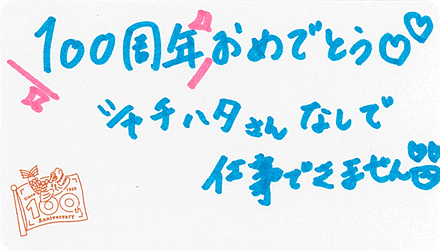 100周年おめでとう♡♡
シャチハタさん なしで
仕事できません
100th
Anniversary